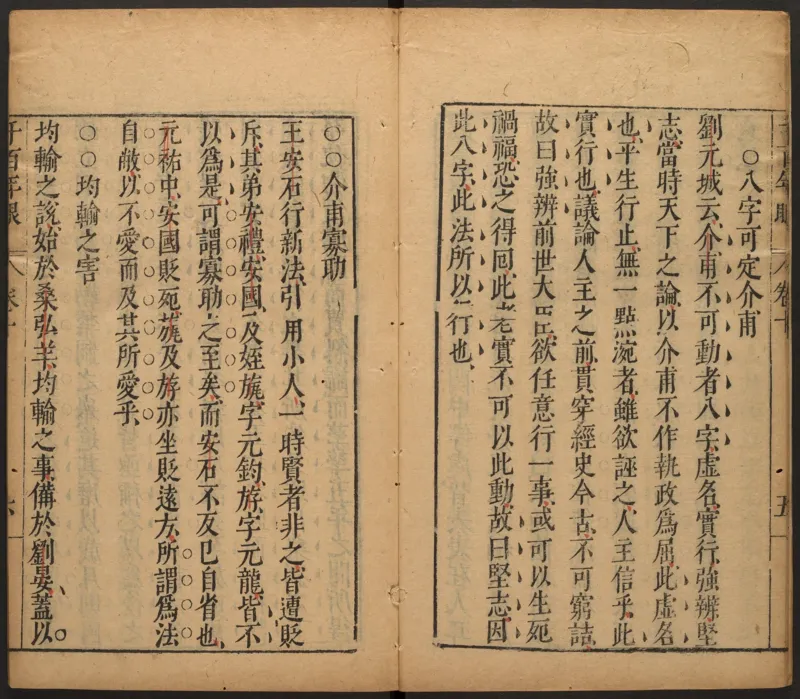 ○八字可定介甫
劉元城云介甫不可動者八字虛名實行強辨堅
志當時天下之論以介甫不作執政為屈此虛名
也平生行止無一點涴者雖欲誣之人主信乎此
實行也議論人主之前貫穿經史今古不可窮詰
故曰強辨前世大臣欲任意行一事或可以生死
禍福恐之得回此老實不可以此動故曰堅志因
此八字此法所以行也
千百年眼 卷十 五
○○介甫寡助
王安石行新法引用小人一時賢者非之皆遭貶
斥其弟安禮安國及姪旊字元鈞斿字元龍皆不
以為是可謂寡助之至矣而安石不反已自省也
元祐中安國貶死旊及斿亦坐貶遠方所謂為法
自敝以不愛而及其所愛乎
○○均輸之害
均輸之說始於桑弘羊均輸之事備於劉晏蓋以
千百年眼 卷十 六